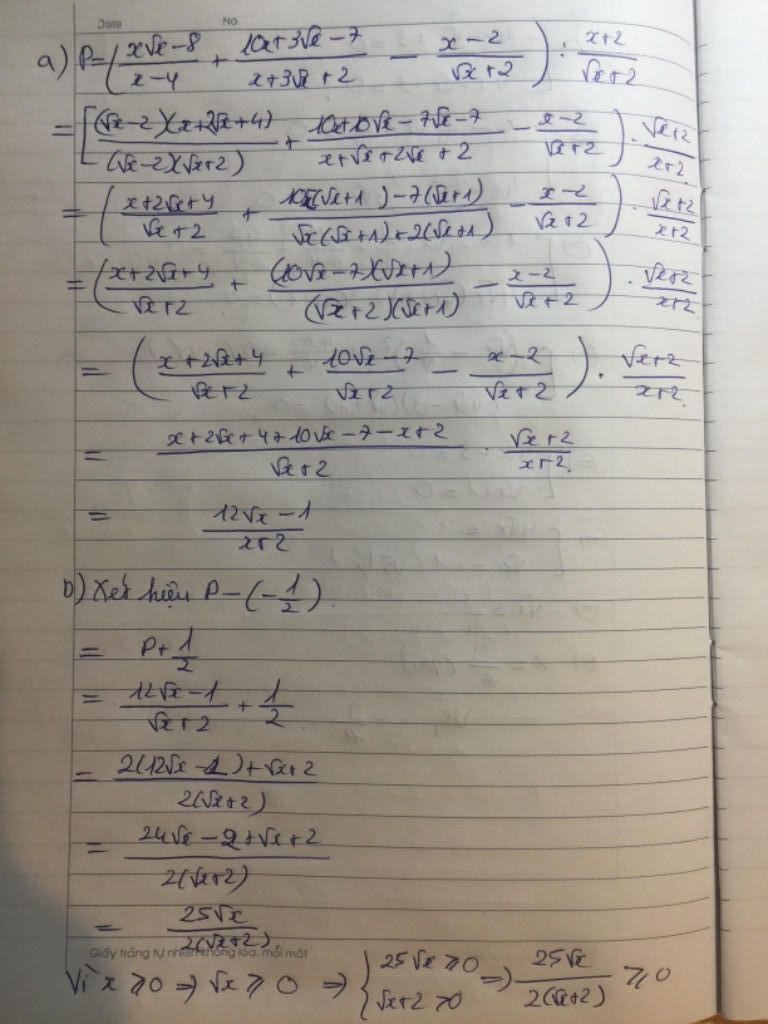 Date No.
a) P = (x√x − 8 / x − 4 + 10x + 3√x − 7 / x + 3√x + 2 − x − 2 / √x + 2) : x + 2 / √x + 2
= [(√x − 2)(x + 2√x + 4) / (√x − 2)(√x + 2) + 10x + 10√x − 7√x − 7 / x + √x + 2√x + 2 − x − 2 / √x + 2) . √x + 2 / x + 2
= (x + 2√x + 4 / √x + 2 + 10√x(√x + 1) − 7(√x + 1) / √x(√x + 1) + 2(√x + 1) − x − 2 / √x + 2) . √x + 2 / x + 2
= (x + 2√x + 4 / √x + 2 + (10√x − 7)(√x + 1) / (√x + 2)(√x + 1) − x − 2 / √x + 2) . √x + 2 / x + 2
= (x + 2√x + 4 / √x + 2 + 10√x − 7 / √x + 2 − x − 2 / √x + 2) . √x + 2 / x + 2
= x + 2√x + 4 + 10√x − 7 − x + 2 / √x + 2 . √x + 2 / x + 2
= 12√x − 1 / x + 2
b) Xét hiệu P − (− 1/2)
= P + 1/2
= 12√x − 1 / √x + 2 + 1/2
= 2(12√x − 1) + √x + 2 / 2(√x + 2)
= 24√x − 2 + √x + 2 / 2(√x + 2)
= 25√x / 2(√x + 2)
Giấy trắng tự nhiên không lóa, mỏi mắt
Vì x ⩾ 0 ⇒ √x ⩾ 0 ⇒ { 25√x ⩾ 0 √x + 2 > 0 ⇒ 25√x / 2(√x + 2) ⩾ 0